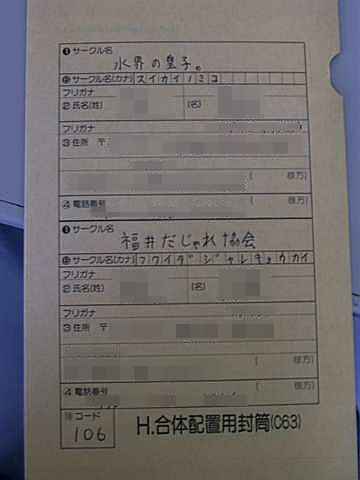 ❶サークル名
水界の皇子。
⓲サークル名(カナ) スイカイノミコ
フリガナ
②氏名(姓) (名)
フリガナ
③住所 〒
( 様方)
④電話番号
❶サークル名
福井だじゃれ協会
⓲サークル名(カナ) フクイダジャレキョウカイ
フリガナ
②氏名(姓) (名)
フリガナ
③住所 〒
( 様方)
④電話番号
コード
106
H.合体配置用封筒(C63)